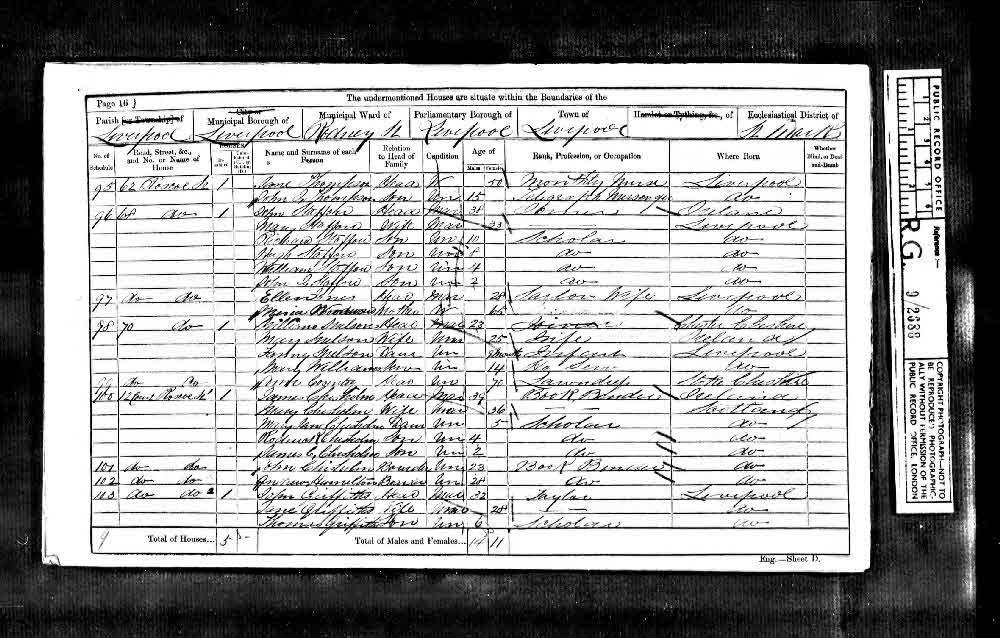 Page 16 }
The undermentioned Houses are situate within the Boundaries of the
Parish [or Township] of
Liverpool
City or
Municipal Borough of
Liverpool
Municipal Ward of
Rodney St
Parliamentary Borough of
Liverpool
Town of
Liverpool
Hamlet or Tything, &c., of
Ecclesiastical District of
St Mark
No. of Schedule
Road, Street, &c., and No. or Name of House
HOUSES
Name and Surname of each Person
Relation to Head of Family
Condition
Age of
Males
Females
Rank, Profession, or Occupation
Where Born
Whether Blind, or Deaf-and-Dumb
95 62 Roscoe St 1 Jane Thompson Head W 50 Monthly Nurse Liverpool
John Thompson Son Un 15 Telegraph Messenger do
96 68 do 1 John Stafford Head Mar 38 Ireland
Mary Stafford Wife Mar 33 Liverpool
Richard Stafford Son Un 10 Scholar do
Hugh Stafford Son Un 8 do do
William Stafford Son Un 4 do do
John Stafford Son Un 2 do do
97 do do Ellen Head Mar 28 Tailors Wife Liverpool
Mother W 65 do
98 70 do 1 William Nelson Head Mar 23 Chester Cheshire
Mary Nelson Wife Mar 25 Wife Ireland
Fanny Nelson Daur Un Infant Liverpool
Mary Williams Un 14 do
99 do do Head Un 70 Laundress
100 12 Court Roscoe St 1 James Chisholm Head Mar 39 Book Binder Ireland
Mary Chisholm Wife Mar 36 — Scotland
Mary Ann Chisholm Daur Un 5 Scholar do
Roderick Chisholm Son Un 4 do do
James C Chisholm Son Un 2 do do
101 do do John Chisholm Boarder Un 23 Book Binder do
102 do do Andrew Hamilton Boarder Un 28 do do
103 do do 2 1 John Griffiths Head Mar 32 Taylor Liverpool
Jane Griffiths Wife Mar 28 — do
Thomas Griffiths Son Un 6 Scholar do
9 Total of Houses... 5 Total of Males and Females... 14 11
Eng.—Sheet D.
PUBLIC RECORD OFFICE
1 2 3 4 5 6
Reference:—
R.G. 9/2688
COPYRIGHT PHOTOGRAPH—NOT TO BE REPRODUCED PHOTOGRAPHICALLY WITHOUT PERMISSION OF THE PUBLIC RECORD OFFICE, LONDON